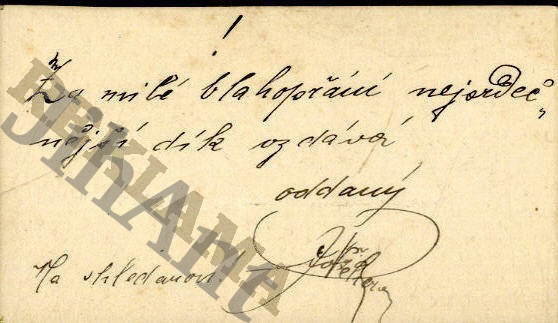 !
Za milé blahopřání nejsrdeč„
nější dík vzdává
oddaný
Na shledanou!
REKLAMA